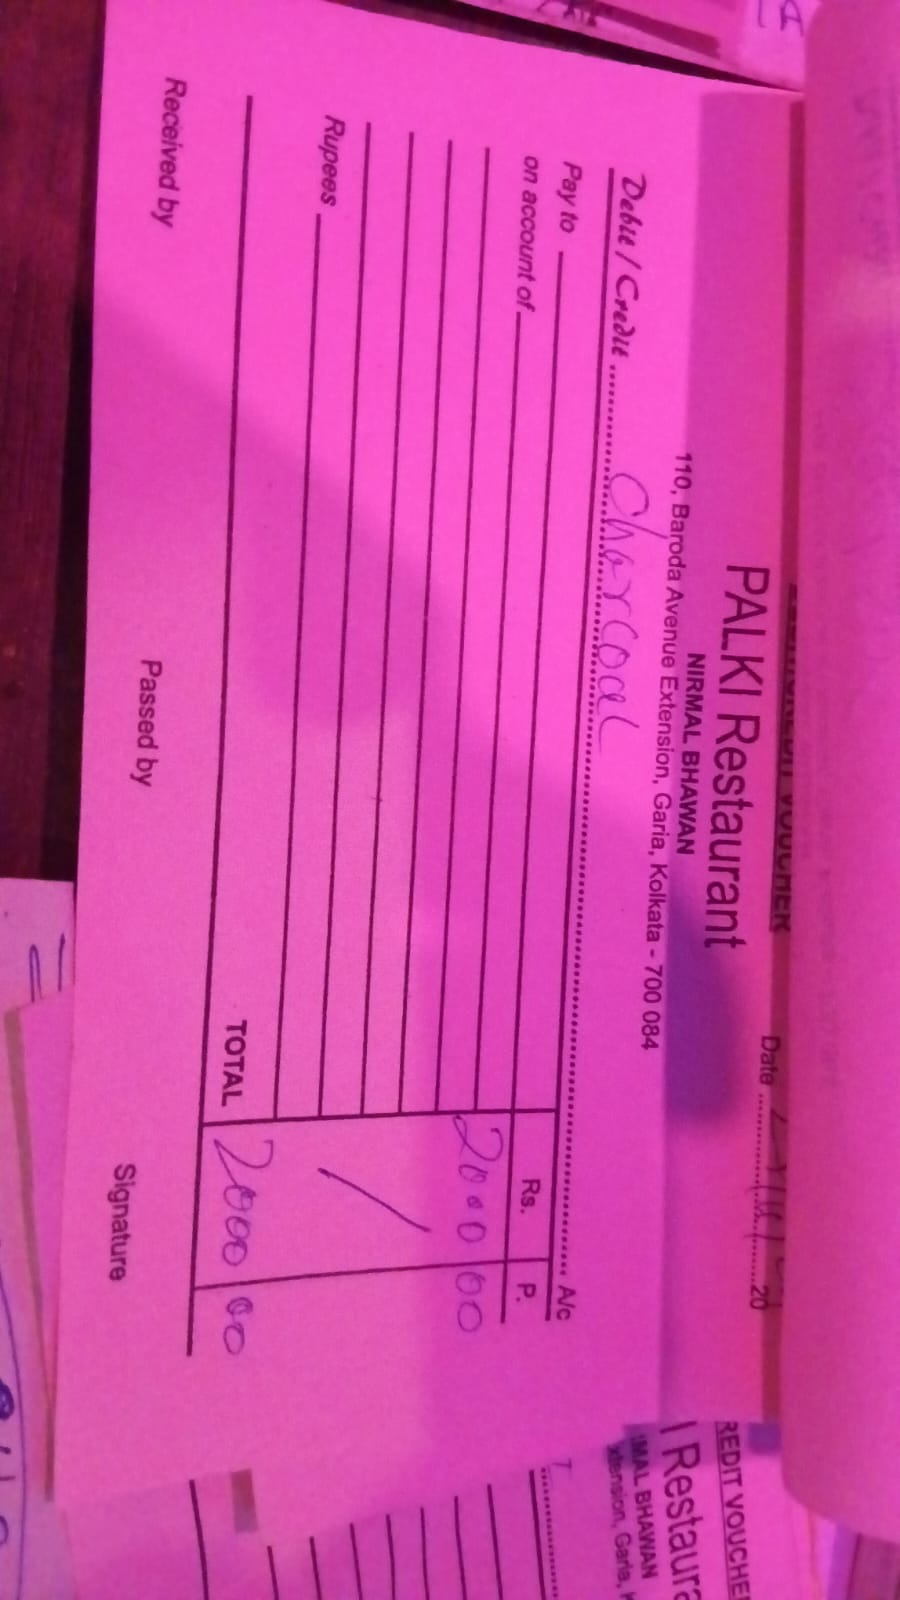 CREDIT VOUCHER
PALKI Restaurant
NIRMAL BHAWAN
110, Baroda Avenue Extension, Garia, Kolkata - 700 084
Date ....................20
Debit / Credit ............ Charcoal ............ A/c
Pay to
on account of
Rs. P.
2000 00
Rupees
TOTAL 2000 00
Received by Passed by Signature
REDIT VOUCHE
I Restaura
MAL BHAWAN
xtension, Garia,